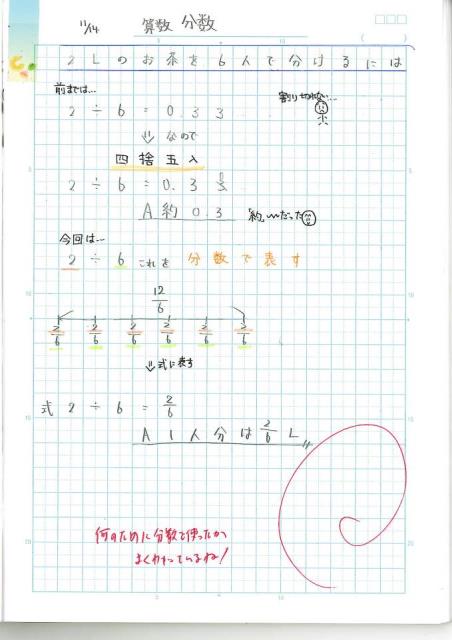 11/14 算数 分数
2Lのお茶を6人で分けるには
前までは…
割り切れない…
2÷6=0.33
⇓なので
四捨五入
2÷6=0.33
A 約0.3
"約"〰だった
今回は…
2÷6 これを 分数で表す
12/6
2/6 2/6 2/6 2/6 2/6 2/6
⇓式に表す
式 2÷6=2/6
A 1人分は2/6L
何のために分数を使ったか
よくわかっているね!